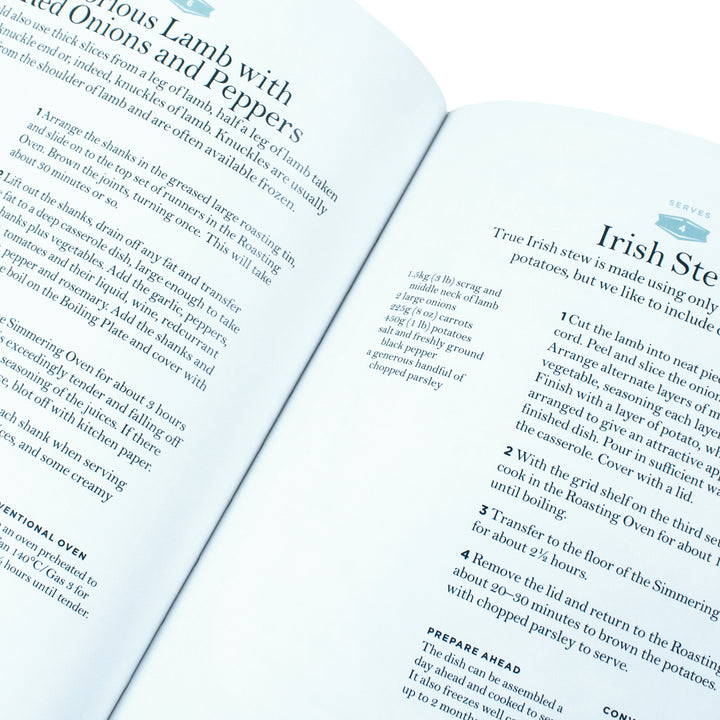 6
Lamb with
Red Onions and Peppers
also use thick slices from a leg of lamb, half a leg of lamb taken
knuckle end or, indeed, knuckles of lamb. Knuckles are usually
from the shoulder of lamb and are often available frozen.
1 Arrange the shanks in the greased large roasting tin,
and slide on to the top set of runners in the Roasting
Oven. Brown the joints, turning once. This will take
about 30 minutes or so.
2 Lift out the shanks, drain off any fat and transfer
fat to a deep casserole dish, large enough to take
shanks plus vegetables. Add the garlic, peppers,
tomatoes and their liquid, wine, redcurrant
pepper and rosemary. Add the shanks and
boil on the Boiling Plate and cover with
Simmering Oven for about 3 hours
exceedingly tender and falling off
seasoning of the juices. If there
blot off with kitchen paper.
each shank when serving,
and some creamy
OVEN
an oven preheated to
140°C/Gas 3 for
hours until tender.
SERVES
4
Irish
True Irish stew is made using only
potatoes, but we like to include
1.5kg (3 lb) scrag and
middle neck of lamb
2 large onions
225g (8 oz) carrots
450g (1 lb) potatoes
salt and freshly ground
black pepper
a generous handful of
chopped parsley
1 Cut the lamb into neat
cord. Peel and slice the
Arrange alternate layers of
vegetable, seasoning each
Finish with a layer of potato,
arranged to give an attractive
finished dish. Pour in sufficient
the casserole. Cover with a lid.
2 With the grid shelf on the third
cook in the Roasting Oven for about
until boiling.
3 Transfer to the floor of the
for about 2½ hours.
4 Remove the lid and return to the Roasting
about 20–30 minutes to brown the potatoes.
with chopped parsley to serve.
PREPARE AHEAD
The dish can be assembled a
day ahead and cooked to
It also freezes well
up to 2 months